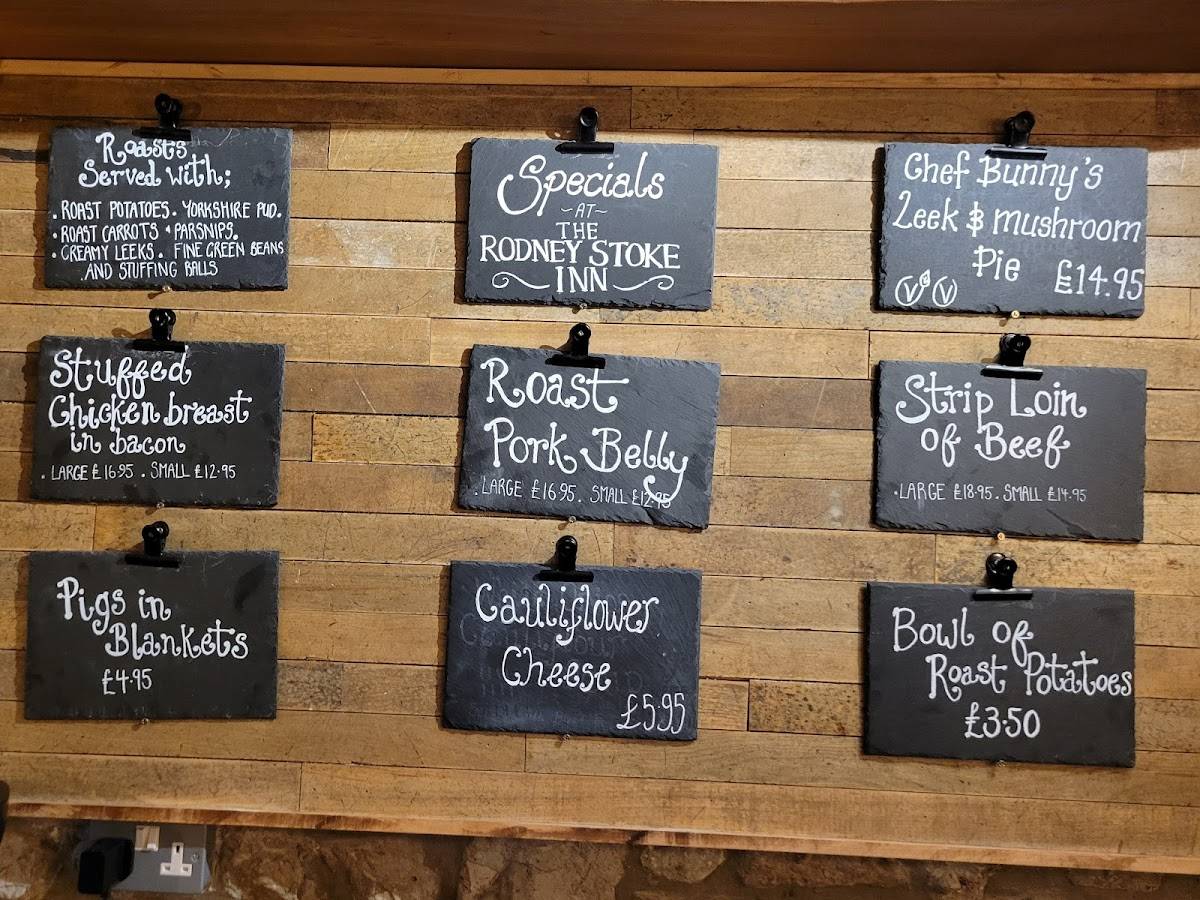 Roasts
Served with;
. ROAST POTATOES. YORKSHIRE PUD.
. ROAST CARROTS & PARSNIPS.
. CREAMY LEEKS. FINE GREEN BEANS
AND STUFFING BALLS
Specials
~AT~
THE
RODNEY STOKE
INN
Chef Bunny's
Leek & mushroom
Pie £14.95
V & V
Stuffed
Chicken breast
in bacon
. LARGE £16.95 . SMALL £12.95
Roast
Pork Belly
. LARGE £16.95. SMALL £12.95
Strip Loin
of Beef
. LARGE £18.95. SMALL £14.95
Pigs in
Blankets
£4.95
Cauliflower
Cheese
£5.95
Bowl of
Roast Potatoes
£3.50